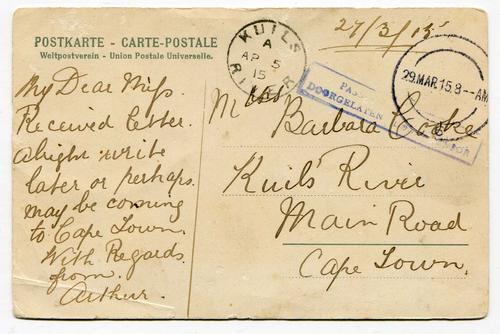 27/3/15
POSTKARTE - CARTE-POSTALE
Weltpostverein - Union Postale Universelle.
KUILS RIVER
A
AP 5
15
29.MAR 15.8--AM
PASSED
DOORGELATEN
My Dear Miss.
Received letter.
Alright write
later or perhaps.
may be coming
to Cape Town.
With Regards.
from.
Arthur.
Miss
Barbara Cooke
Kuils' River
Main Road
Cape Town.